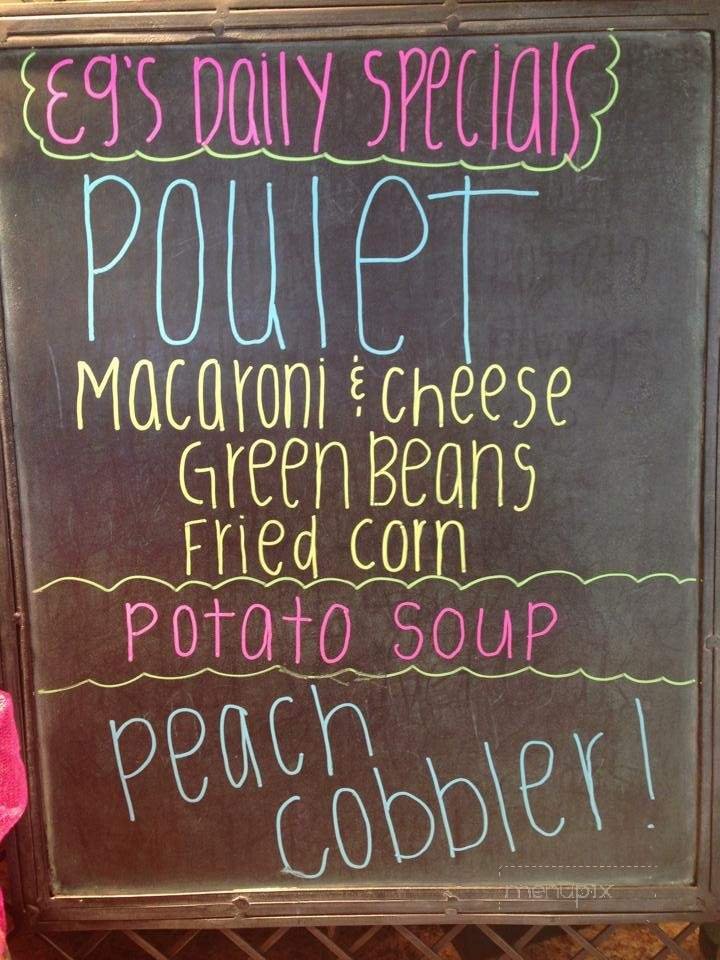 Eg's Daily Specials
Poulet
Macaroni & Cheese
Green Beans
Fried Corn
Potato Soup
Peach
Cobbler!
menupix